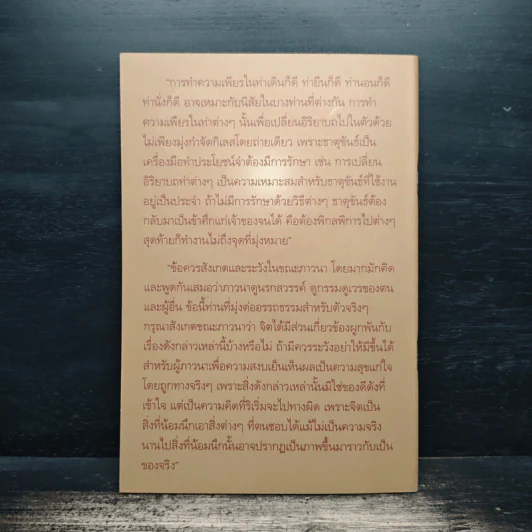 "การทำความเพียรในท่าเดินก็ดี ท่ายืนก็ดี ท่านอนก็ดี
ท่านั่งก็ดี อาจเหมาะกับนิสัยในบางท่านที่ต่างกัน การทำ
ความเพียรในท่าต่างๆ นั้นเพื่อเปลี่ยนอิริยาบถไปในตัวด้วย
ไม่เพียงมุ่งกำจัดกิเลสโดยถ่ายเดียว เพราะธาตุขันธ์เป็น
เครื่องมือทำประโยชน์จำต้องมีการรักษา เช่น การเปลี่ยน
อิริยาบถท่าต่างๆ เป็นความเหมาะสมสำหรับธาตุขันธ์ที่ใช้งาน
อยู่เป็นประจำ ถ้าไม่มีการรักษาด้วยวิธีต่างๆ ธาตุขันธ์ต้อง
กลับมาเป็นข้าศึกแก่เจ้าของจนได้ คือต้องพิกลพิการไปต่างๆ
สุดท้ายก็ทำงานไม่ถึงจุดที่มุ่งหมาย"
"ข้อควรสังเกตและระวังในขณะภาวนา โดยมากมักคิด
และพูดกันเสมอว่าภาวนาดูนรกสวรรค์ ดูกรรมดูเวรของตน
และผู้อื่น ข้อนี้ท่านที่มุ่งต่ออรรถธรรมสำหรับตัวจริงๆ
กรุณาสังเกตขณะภาวนาว่า จิตได้มีส่วนเกี่ยวข้องผูกพันกับ
เรื่องดังกล่าวเหล่านี้บ้างหรือไม่ ถ้ามีควรระวังอย่าให้มีขึ้นได้
สำหรับผู้ภาวนาเพื่อความสงบเย็นเห็นผลเป็นความสุขแก่ใจ
โดยถูกทางจริงๆ เพราะสิ่งดังกล่าวเหล่านั้นมิใช่ของดีดังที่
เข้าใจ แต่เป็นความคิดที่ริเริ่มจะไปทางผิด เพราะจิตเป็น
สิ่งที่น้อมนึกเอาสิ่งต่างๆ ที่ตนชอบได้แม้ไม่เป็นความจริง
นานไปสิ่งที่น้อมนึกนั้นอาจปรากฏเป็นภาพขึ้นมาราวกับเป็น
ของจริง"